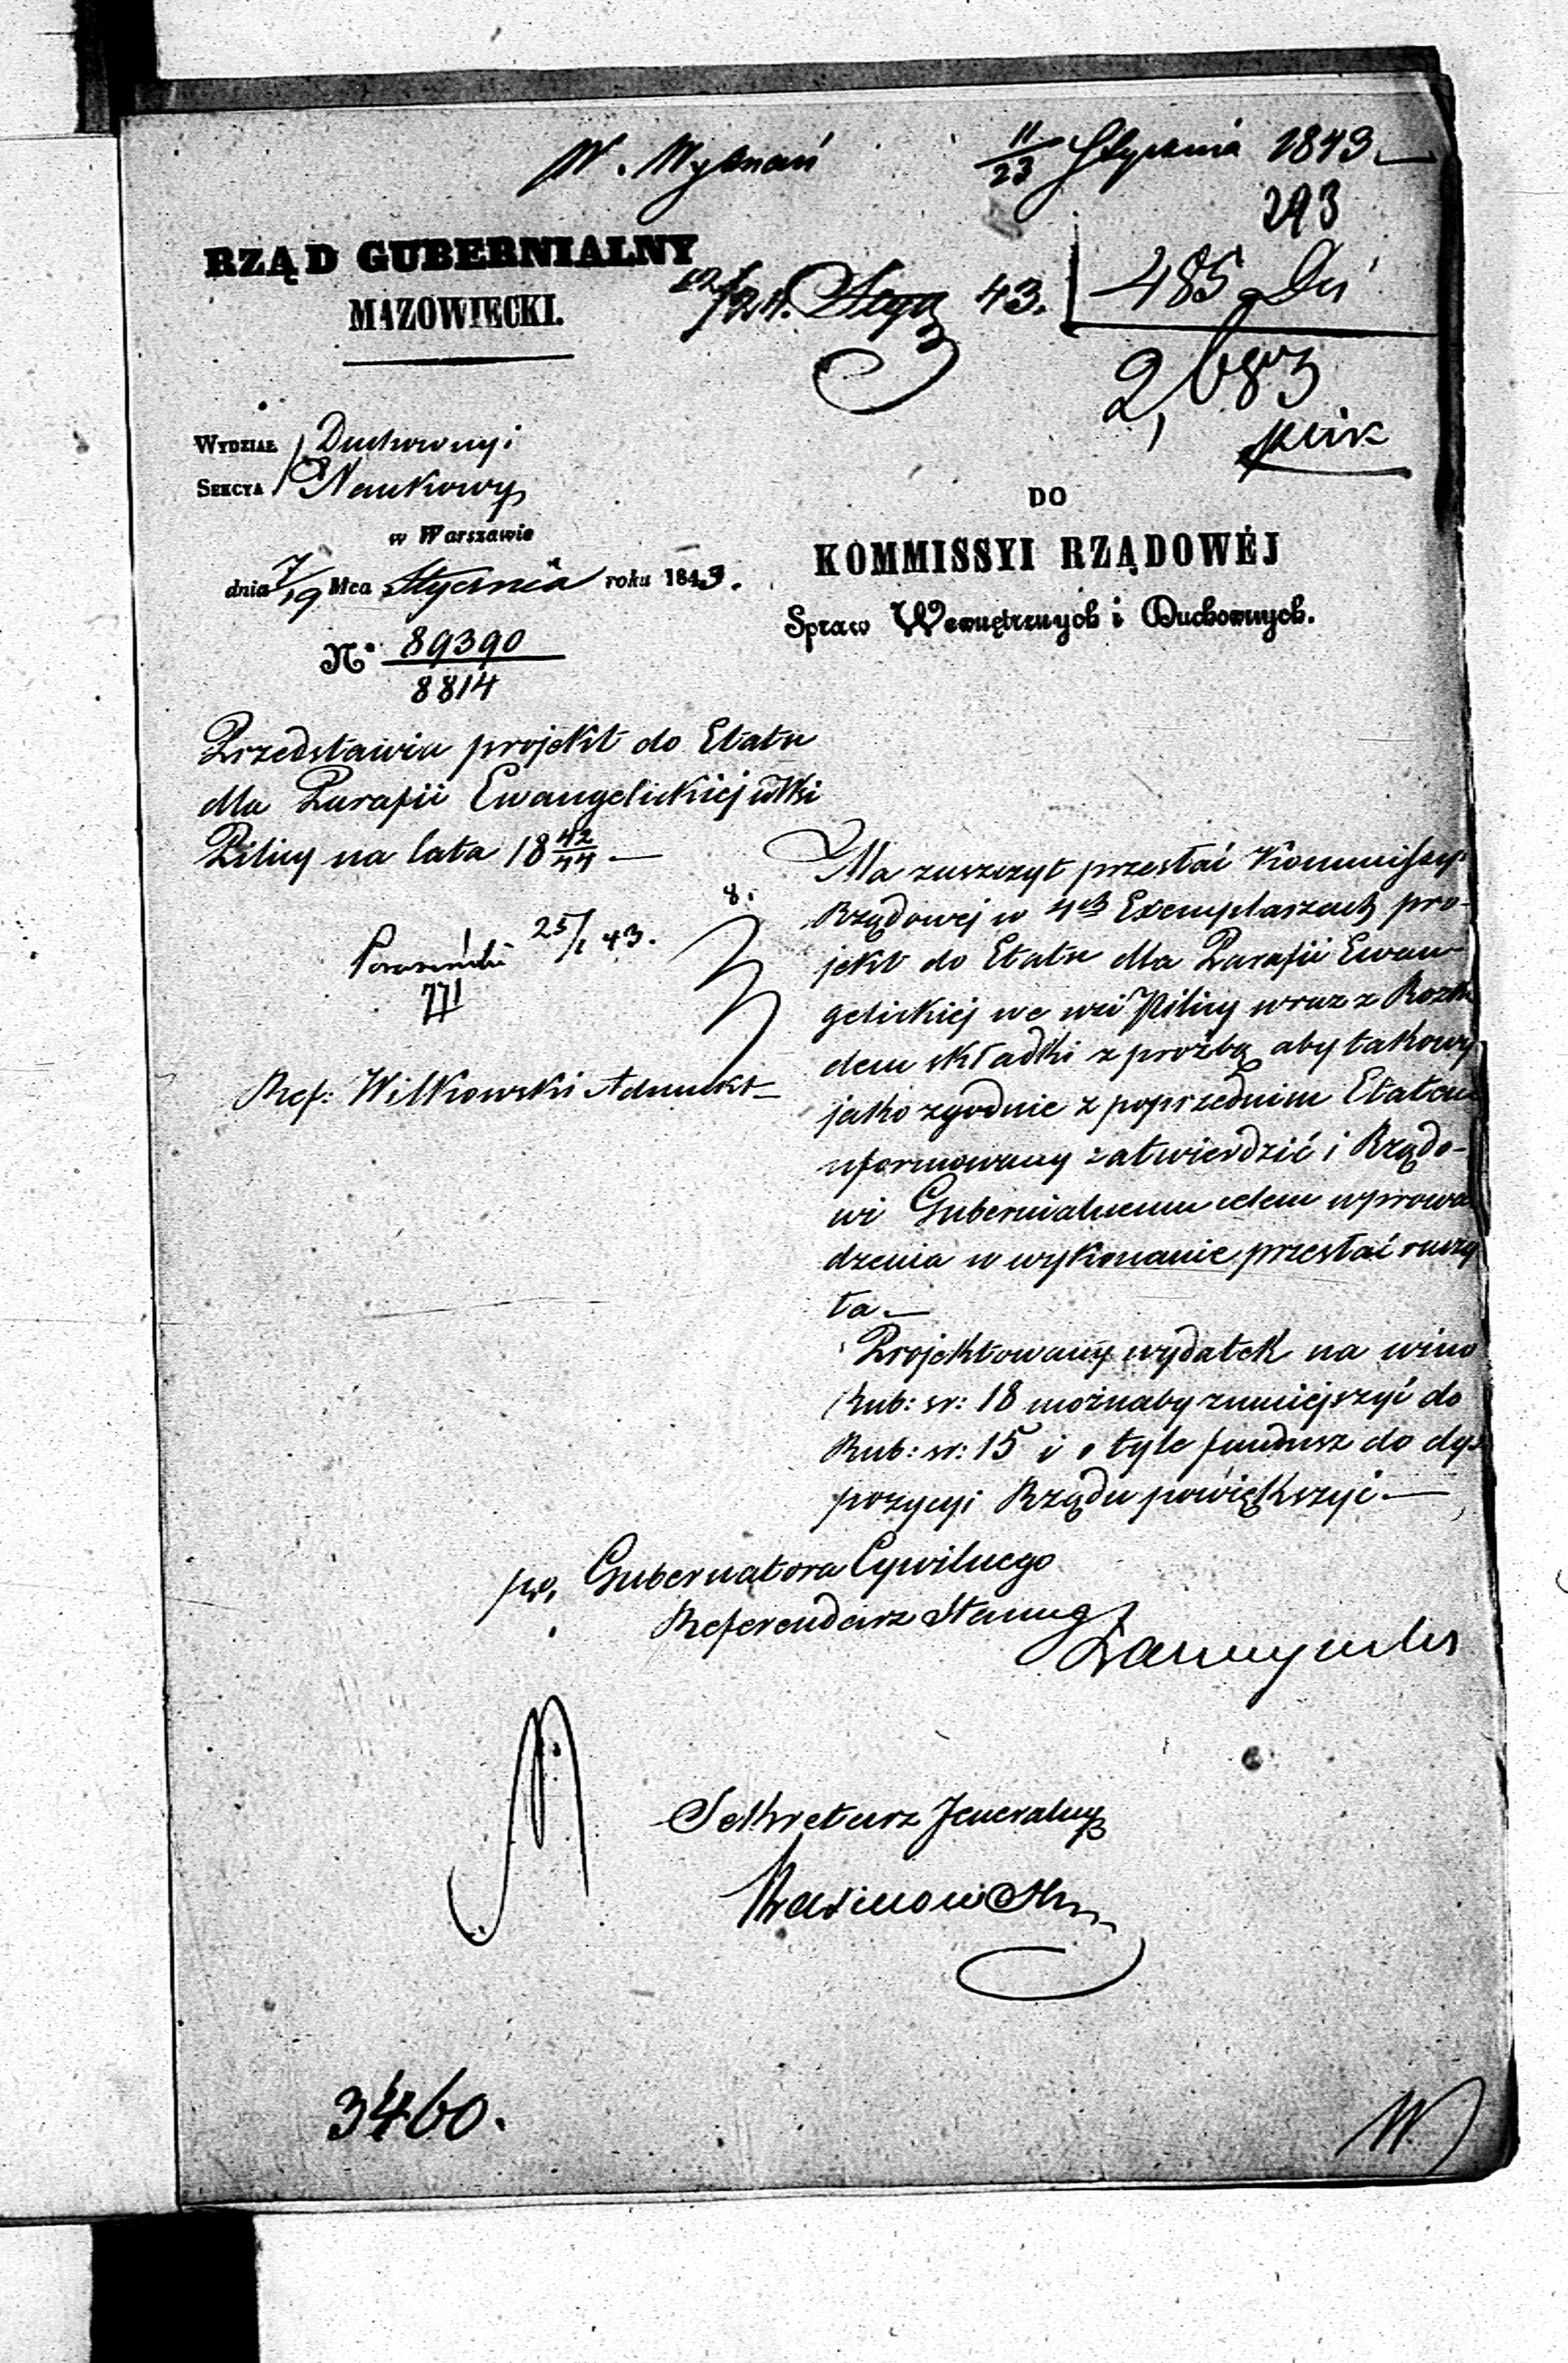 W. Wyznań
11/23 Stycznia 1843
293
RZĄD GUBERNIALNY
MAZOWIECKI.
12/24 43.
485
WYDZIAŁ Duchownyi
SEKCYA Naukowy
w Warszawie
dnia 7/19 Mca Stycznia roku 1843.
N° 89390
8814
DO
KOMMISSYI RZĄDOWÉJ
Spraw Wewnętrznych i Duchownych.
Przedstawia projekt do Etatu
dla Parafii Ewangelickiej wWsi
Pilicy na lata 18 42/44 —
25/1 43.
8.
Ref: Wilkowski Adiunkt
Ma zaszczyt przesłać Kommissyi
Rządowej w 4ch Exemplarzach pro-
jekt do Etatu dla Parafii Ewan-
gelickiej we wsi Pilicy wraz z Rozkła
dem składki z prozbą aby takowy
jako zgodnie z poprzednim Etatem
uformowany zatwierdzić i Rządo-
wi Gubernialnemu celem wprowa
dzenia w wykonanie przesłać raczy
ła —
Projektowany wydatek na wino
Rub: sr: 18 możnaby zmniejszyć do
Rub: sr: 15 i o tyle fundusz do dys
pozycyi Rządu powiększyć —
po. Gubernatora Cywilnego
Referendarz Stanu
Sekretarz Jeneralny
3460.